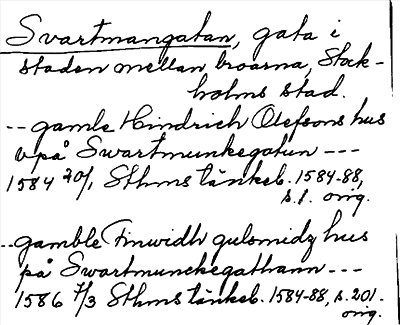 Svartmangatan, gata i
staden mellan broarna, Stock-
holms stad.
-- gamle Hindrich Olefsons hus
vpå Swartmunkegatun ---
1584 20/1, Sthms tänkeb. 1584-88,
s.1. orig.
-- gamble Finwidh gulsmidz hus
på Swartmunckegathann ---
1586 7/3 Sthms tänkeb. 1584-88, s.201.
orig.